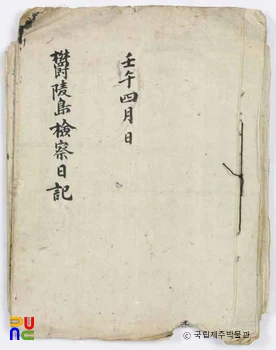 壬午四月日
欝陵島檢察日記
PUNC
© 국립제주박물관